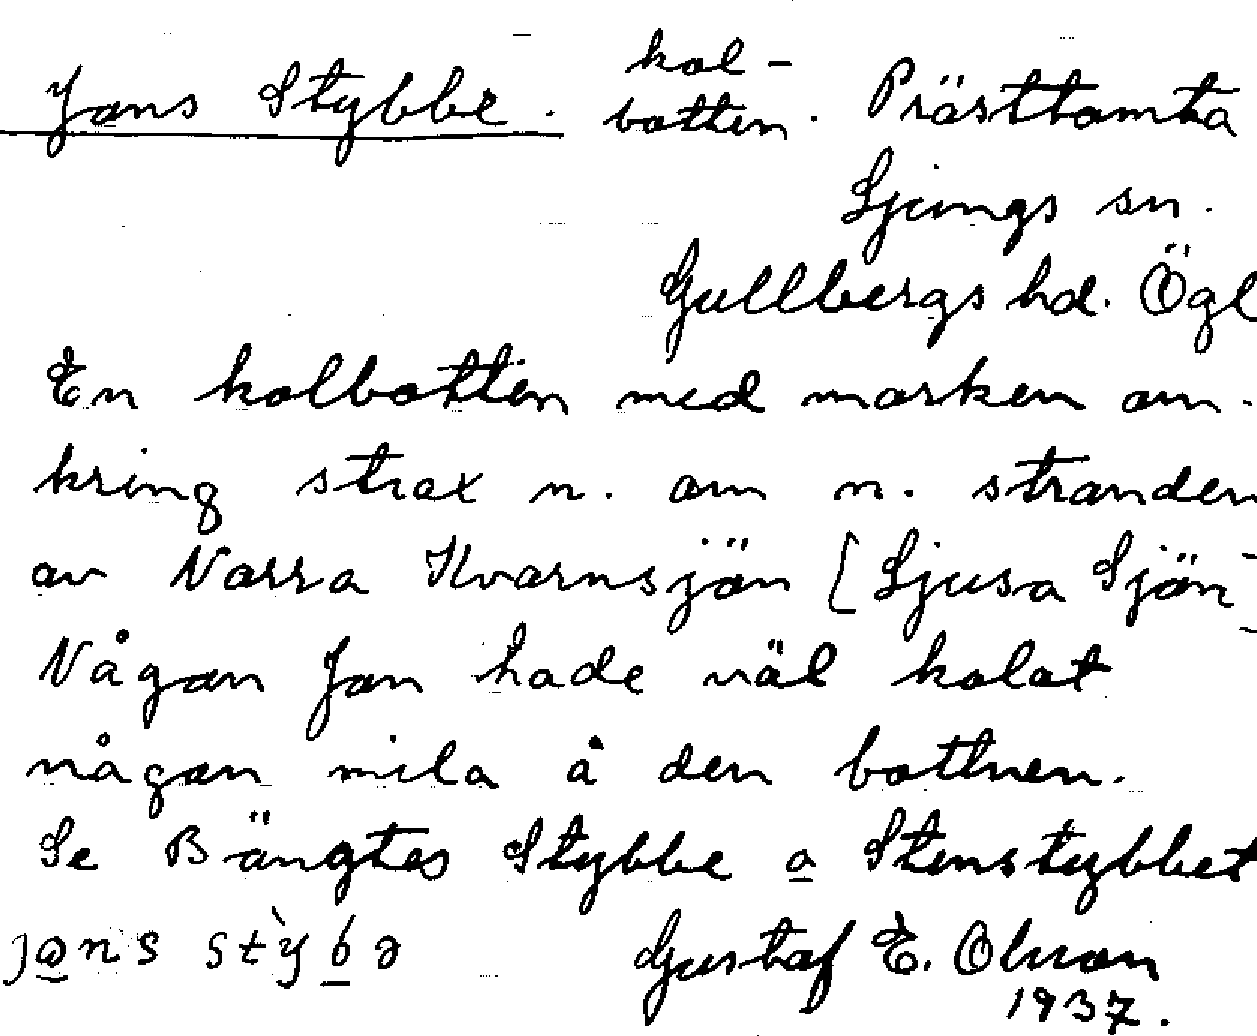 Jans Stybbe. kol-
botten. Prästtomta
Ljungs sn.
Gullbergs hd. Ögl
En kolbotten med marken om-
kring strax n. om n. stranden
av Norra Kvarnsjön [Ljusa Sjön]
Någon Jan hade väl kolat
någon mila å den bottnen.
Se Bängtes Stybbe o Stenstybbet
jɑns stỳbə Gustaf E. Olsson
1937.